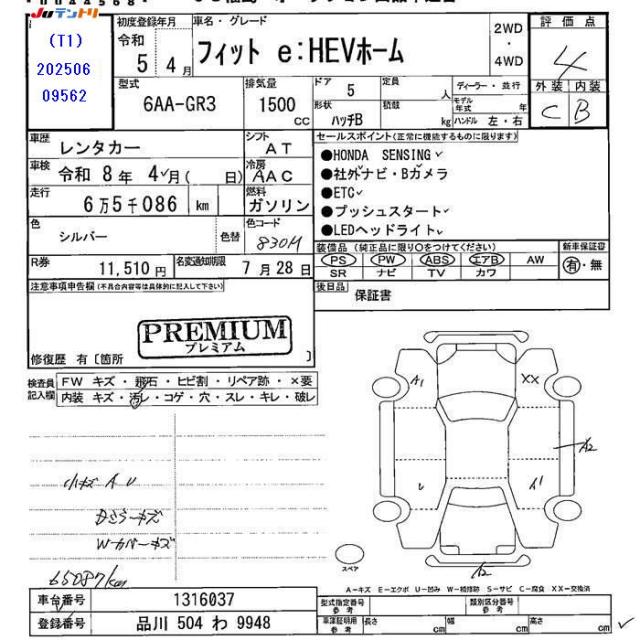 JUテントリ
(T1)
202506
09562
初度登録年月
令和
5 4月
車名・グレード
フィット e:HEVホーム
2WD
・
4WD
評価点
4
外装 内装
C B
型式
6AA-GR3
排気量
1500
CC
ドア 5
形状
ハッチB
定員
人
積載
kg
ディーラー・並行
モデル年式 年
ハンドル 左・右
車歴 レンタカー
シフト AT
車検 令和 8年 4月( 日)
冷房 AAC
走行 6万5千086 km
燃料 ガソリン
色 シルバー
色替
色コード 830M
R券 11,510円
名変通知期限 7月28日
セールスポイント(正常に機能するものに限ります)
●HONDA SENSING
●社外ナビ・Bカメラ
●ETC
●プッシュスタート
●LEDヘッドライト
装備品(純正品に限り○をつけてください)
PS PW ABS エアB AW
SR ナビ TV カワ
新車保証書
有・無
後日品 保証書
注意事項申告欄(不具合内容等は具体的に記入して下さい)
PREMIUM
プレミアム
修復歴 有〔箇所 〕
検査員記入欄
FW キズ・飛石・ヒビ割・リペア跡・×要
内装 キズ・汚レ・コゲ・穴・スレ・キレ・破レ
小キズ A U
Bミラーキズ
Wカバーキズ
65087km
A1
XX
A2
A2
スペア
A-キズ E-エクボ U-凹み W-補修跡 S-サビ C-腐食 XX-交換済
車台番号 1316037
登録番号 品川 504 わ 9948
型式指定番号 参考
類別区分番号 参考
車庫証明用 参考
長さ cm
幅 cm
高さ cm